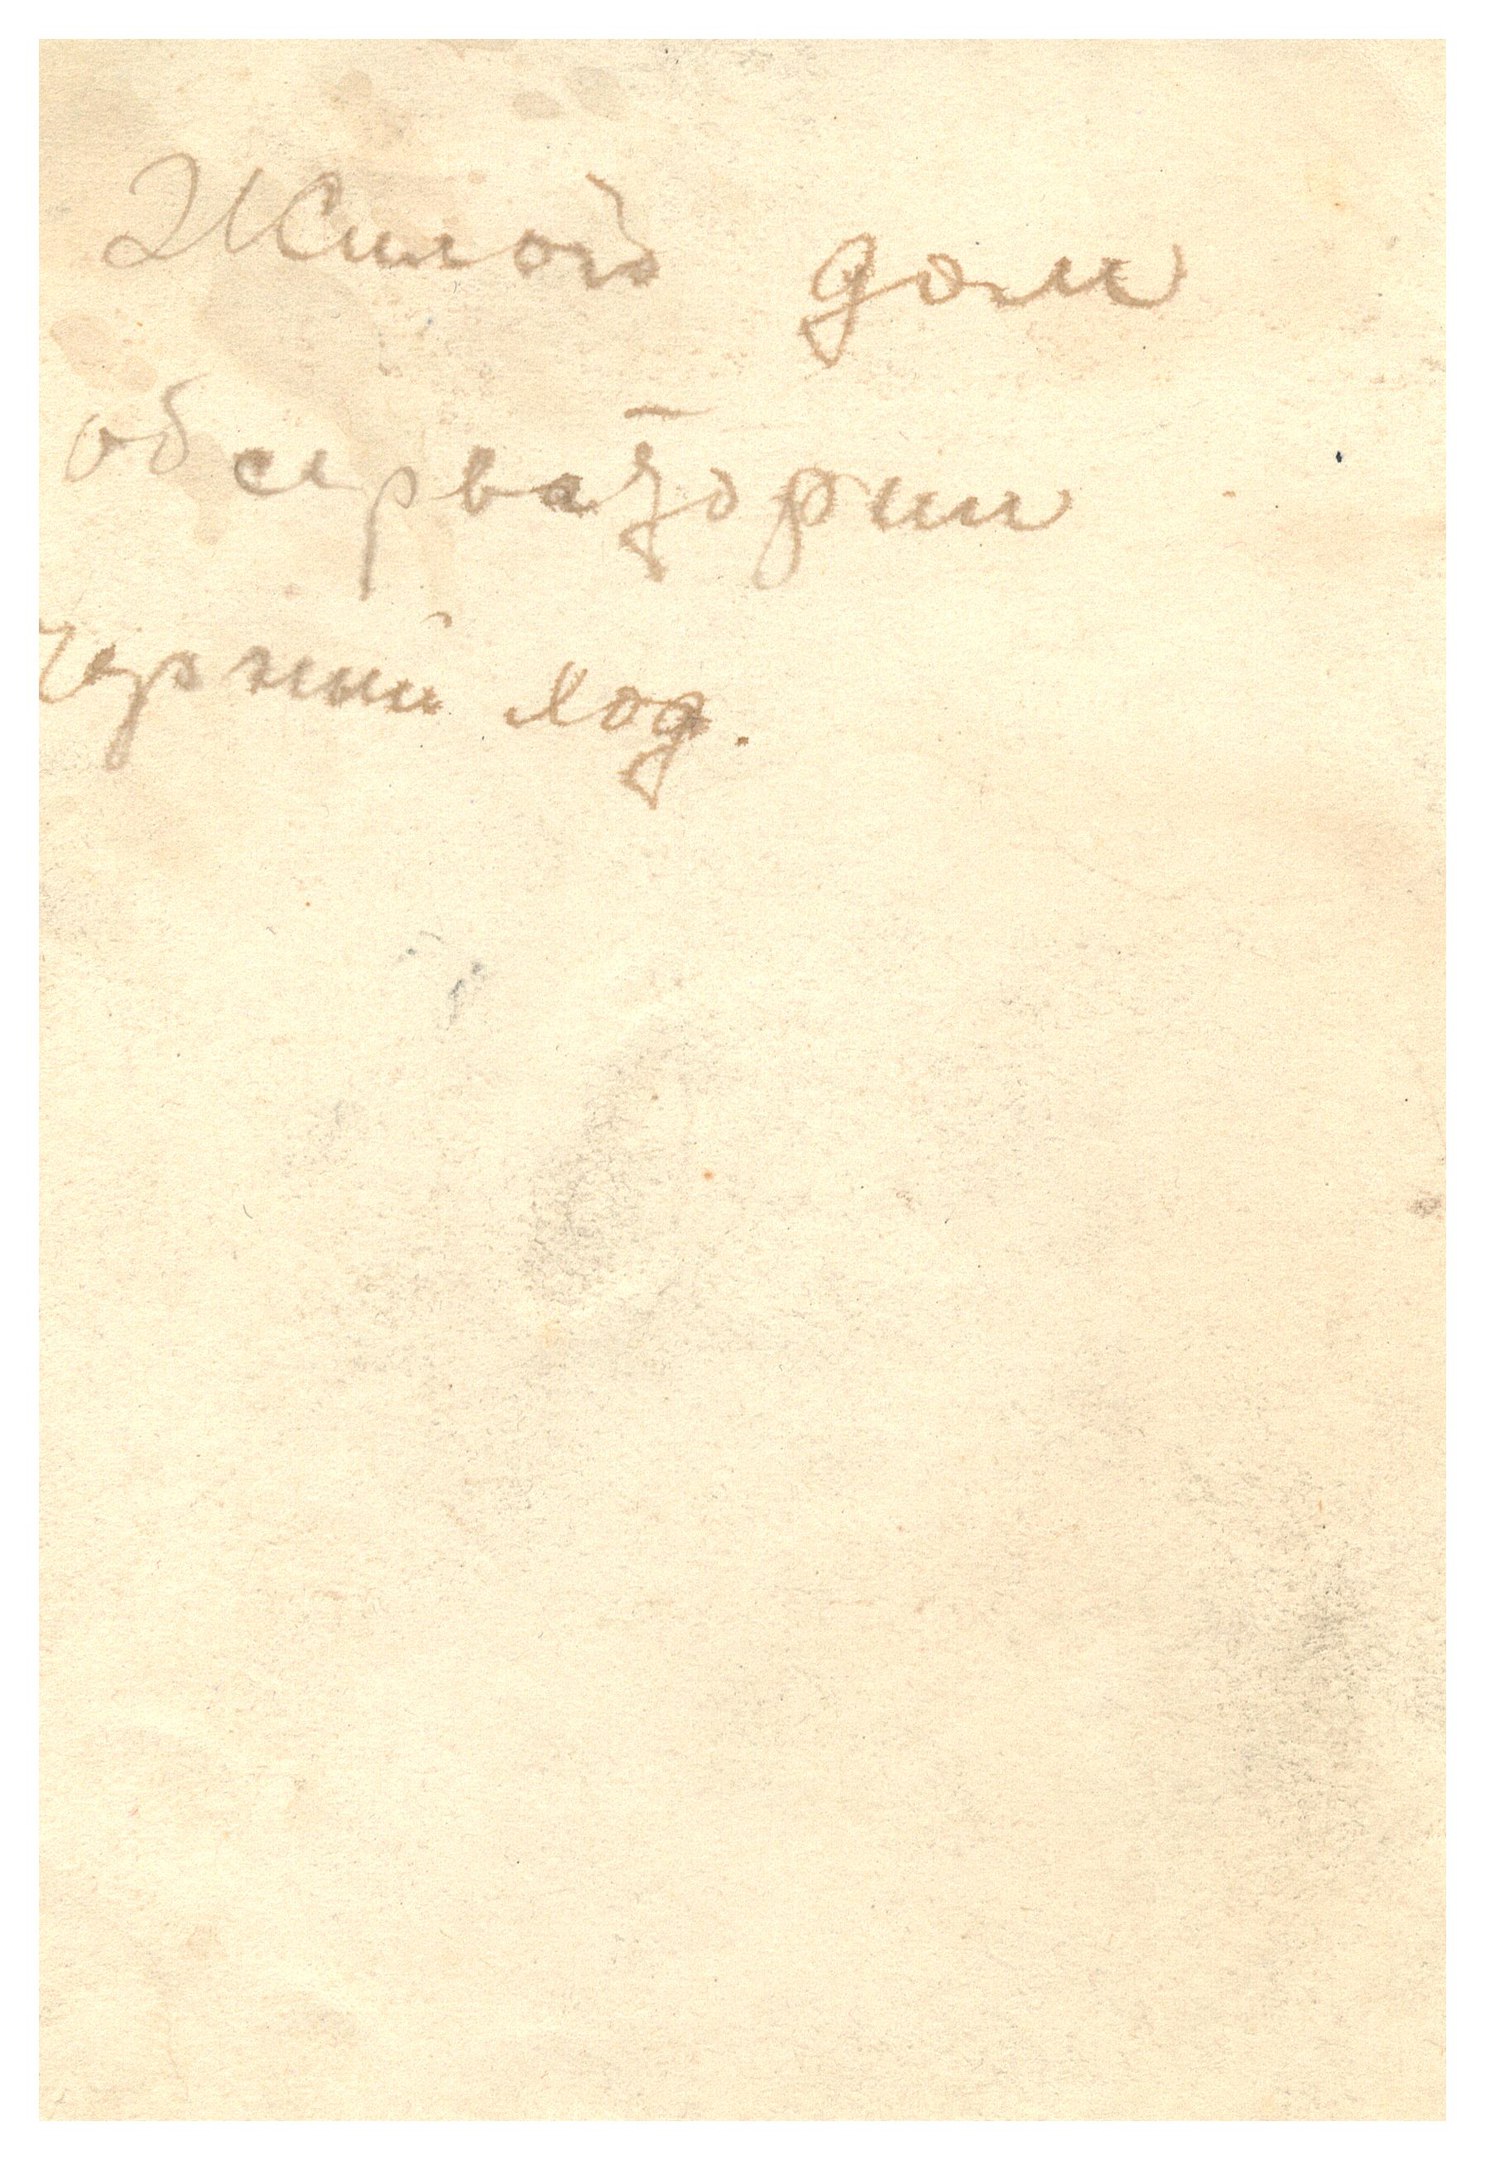 Жилой дом
обсерватории
черный ход.